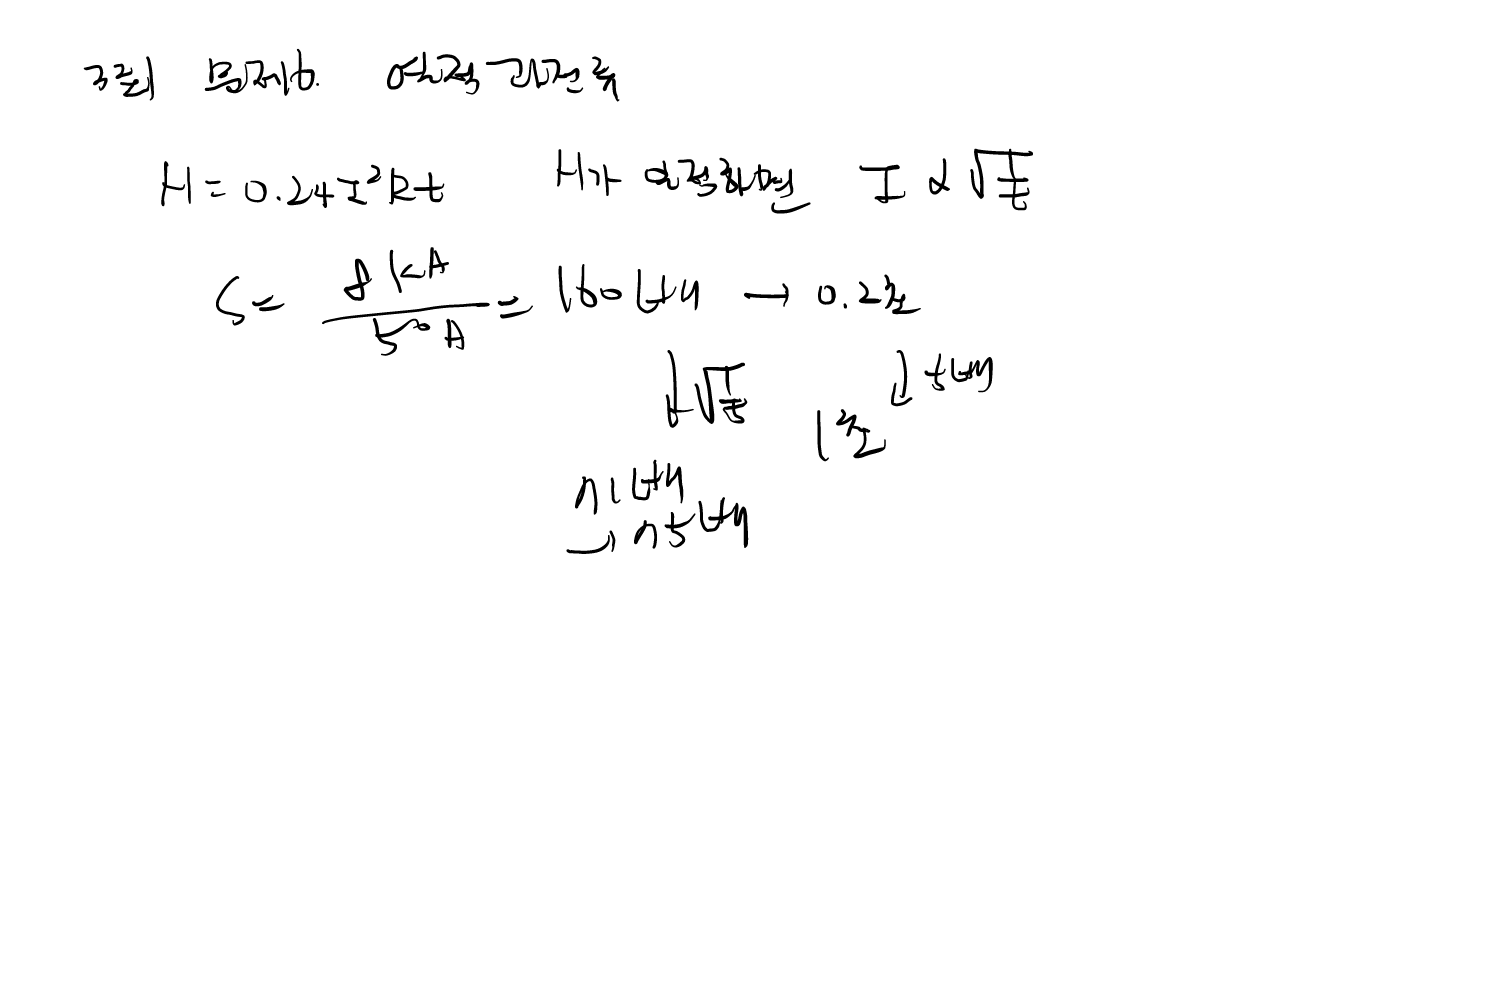 3회 문제6. 열적 과전류
H = 0.24I²Rt H가 일정하면 I ∝ √(1/t)
S = 8kA / 50A = 160배 → 0.2초
↓√(1/5) ↓5배
1초
n1배
→ n5배